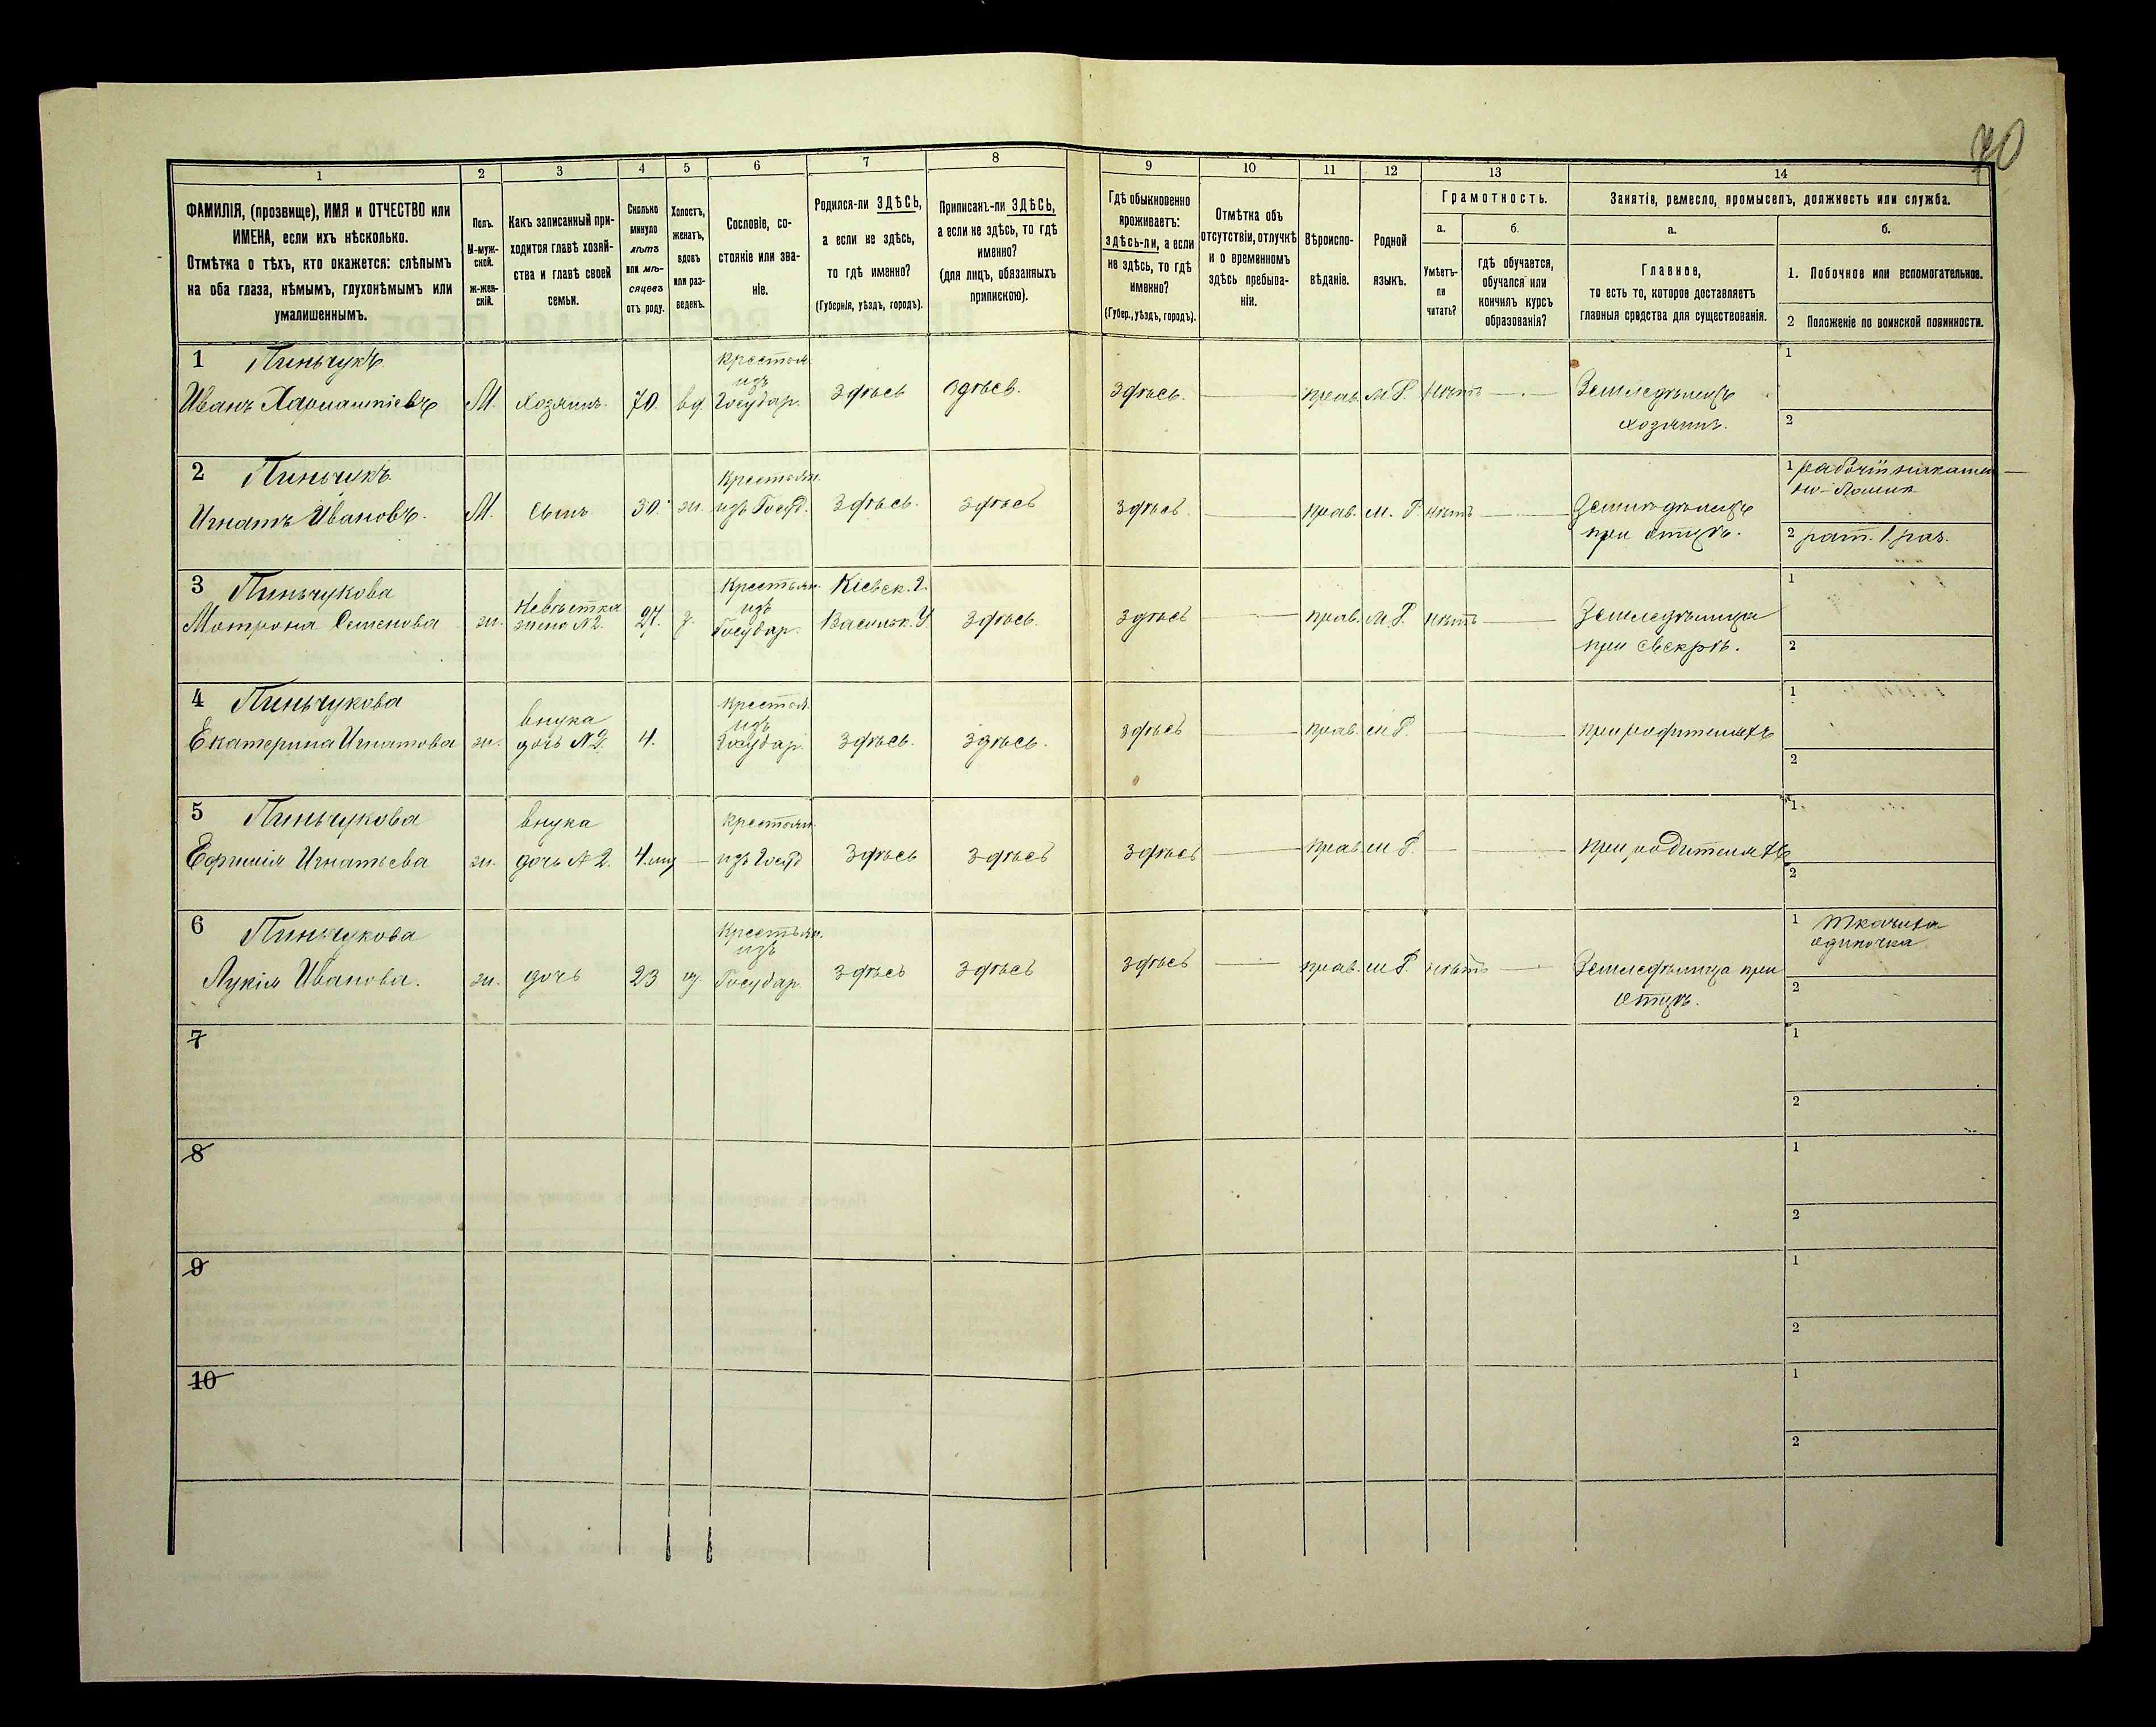 70
1 2 3 4 5 6 7 8 9 10 11 12 13 14
ФАМИЛІЯ, (прозвище), ИМЯ и ОТЧЕСТВО или
ИМЕНА, если ихъ нѣсколько.
Отмѣтка о тѣхъ, кто окажется: слѣпымъ
на оба глаза, нѣмымъ, глухонѣмымъ или
умалишеннымъ.
Полъ.
М-муж-
ской.
ж-жен-
скій.
Какъ записанный при-
ходится главѣ хозяй-
ства и главѣ своей
семьи.
Сколько
минуло
лѣтъ
или мѣ-
сяцевъ
отъ роду.
Холостъ,
женатъ,
вдовъ
или раз-
веденъ.
Сословіе, со-
стояніе или зва-
ніе.
Родился-ли ЗДѢСЬ,
а если не здѣсь,
то гдѣ именно?
(Губернія, уѣздъ, городъ).
Приписанъ-ли ЗДѢСЬ,
а если не здѣсь, то гдѣ
именно?
(для лицъ, обязанныхъ
припискою).
Гдѣ обыкновенно
проживаетъ:
здѣсь-ли, а если
не здѣсь, то гдѣ
именно?
(Губер., уѣздъ, городъ).
Отмѣтка объ
отсутствіи, отлучкѣ
и о временномъ
здѣсь пребыва-
ніи.
Вѣроиспо-
вѣданіе.
Родной
языкъ.
Грамотность.
а.
Умѣетъ-
ли
читать?
б.
гдѣ обучается,
обучался или
кончилъ курсъ
образованія?
Занятіе, ремесло, промыселъ, должность или служба.
а.
Главное,
то есть то, которое доставляетъ
главныя средства для существованія.
б.
1. Побочное или вспомогательное.
2 Положеніе по воинской повинности.
1 Пиньчукъ
Иванъ М. Хозяинъ. 70 вд Крестьян. изъ Государ. Здѣсь Здѣсь. Здѣсь. — прав. М.Р. Нѣтъ — Земледѣлецъ
хозяинъ.
1
2
2 Пиньчукъ
Игнатъ Ивановъ. М. Сынъ 30. ж. Крестьян. изъ Госуд. Здѣсь. Здѣсь Здѣсь. — прав. М.Р. нѣтъ — Земледѣлецъ
при отцѣ.
1 рабочій
2 рат. 1 раз.
3 Пиньчукова
Мотрона Семенова ж. Невѣстка жена №2. 27. з. Крестьян. изъ Государ. Кіевск. Г. Васильк. У. Здѣсь. Здѣсь — прав. М.Р. нѣтъ — Земледѣлица
при свекрѣ.
1
2
4 Пиньчукова
Екатерина Игнатова ж. внука дочь №2. 4. Крестьян. изъ Государ. Здѣсь. Здѣсь. Здѣсь — прав. М.Р. — — при родителяхъ
1
2
5 Пиньчукова
Ефимія Игнатьева ж. внука дочь №2. 4. мц — Крестьян. изъ Госуд Здѣсь Здѣсь Здѣсь — прав. М.Р. — — при родителяхъ
1
2
6 Пиньчукова
Лукія Иванова. ж. дочь 23 Крестьян. изъ Государ. Здѣсь Здѣсь Здѣсь — прав. М.Р. нѣтъ — Земледѣлица при
отцѣ.
1 Ткачиха
одиночка
2
7
1
2
8
1
2
9
1
2
10
1
2